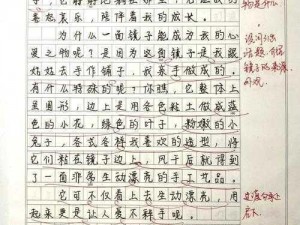 喜怒哀乐,陪伴着我的成长。
为什么一面镜子能成为我的心
爱之物呢?是因为这面镜子是我跟
姑姑去手作铺子,我亲手做成的。
有什么特殊的呢?你瞧,它整体上
呈圆形,边上是用各色黏土做成蓝
色的小花,绿色的叶子,粉嫩的小
兔子,各式各样我喜欢的造型,将
它们粘在镜子边上,风干后就得到
了一面非常生动漂亮的手工作品。
它可不仅看上去生动漂亮,用
起来更是让人爱不释手呢。